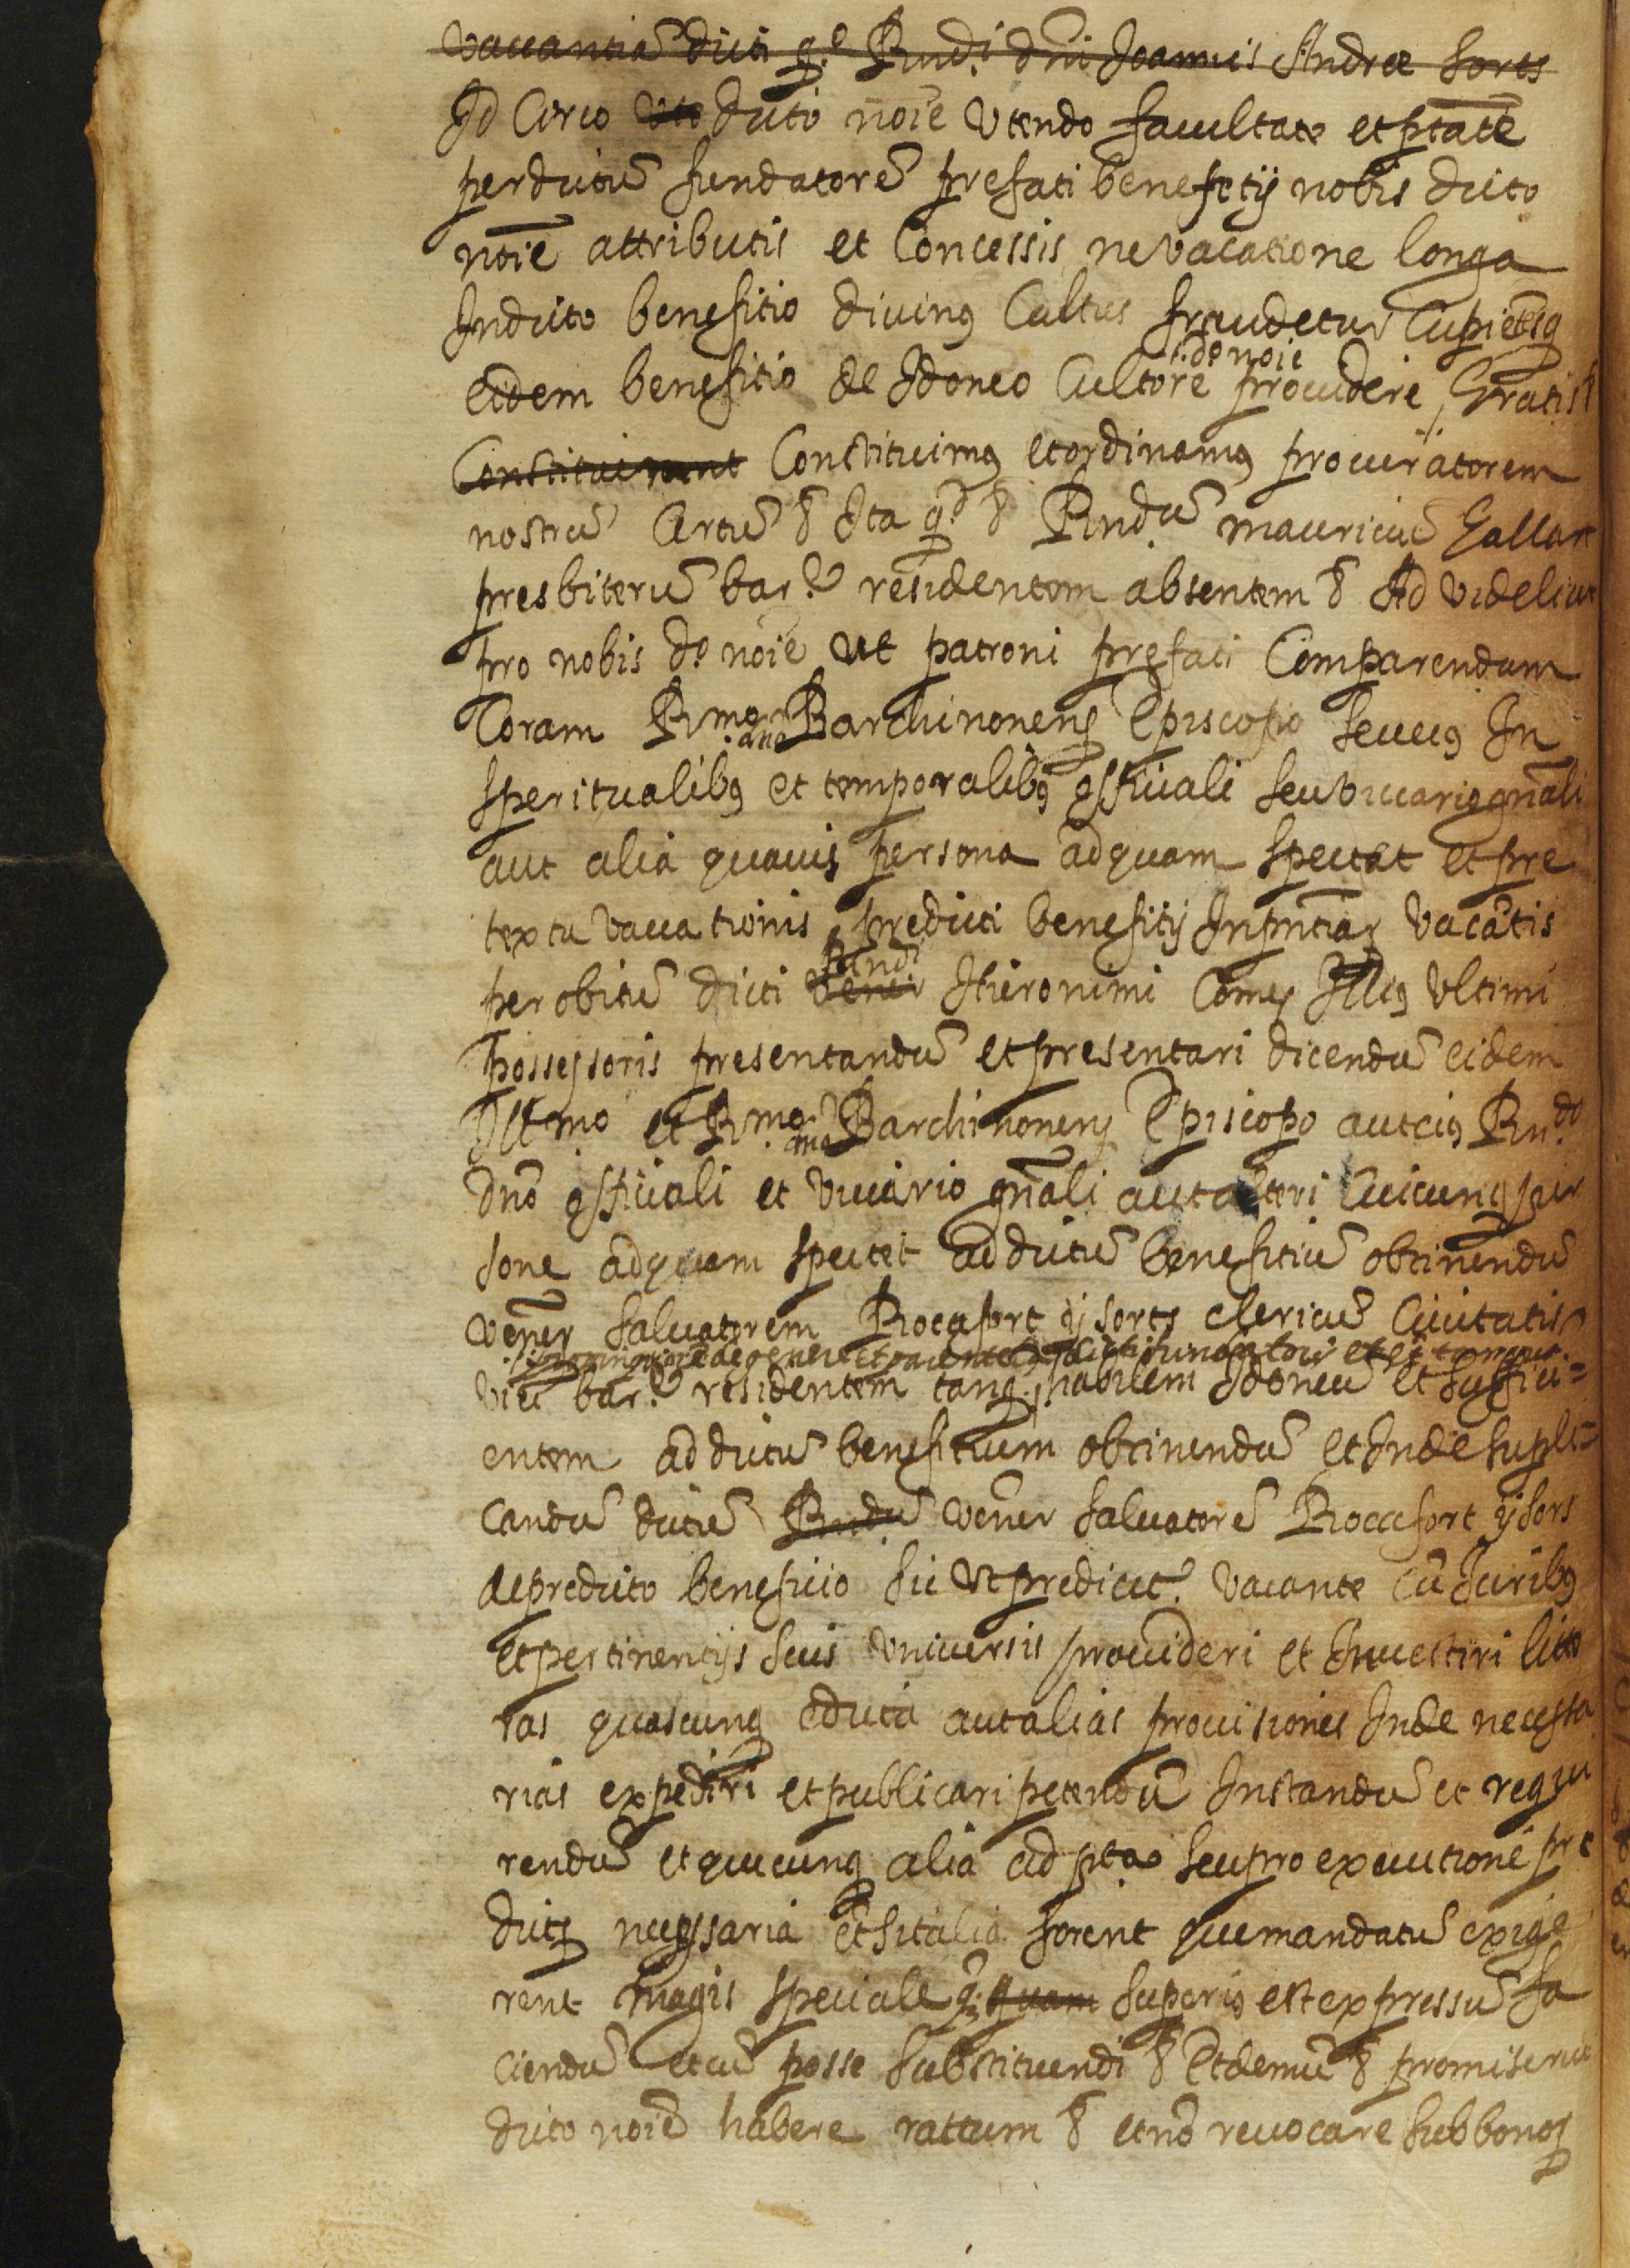 vaccantiã dicti q.º Rnd.i dni Joannis Andree Sorts
Id Circo dicto noie Utendo facultate et ptate
per dictũ fundatorẽ prefati benefitij nobis dicto
noie attributis et Concessis ne vacatione longa
In dicto benefitio divinus Cultus fraudetur Cupietesq
.do noie
eidem benefitio de Idoneo Cultore providere, Gratis
Constituerunt Constituimus et ordinamus procuratorem
nostrũ Certũ & Ita q.d & Rnd.ũ mauriciũ Gallart
presbiterũ bar.e residentem absentem & Ad videlicet
pro nobis d.o noie ut patroni prefati Comparendum
Coram Rmo. Barchinonens Episcopo seu eius In
speritualibus et temporalibus offitiali seu vicario gnali
aut alia quavis persona ad quam spectat et pre
textu vaccationis predicti benefitij Inpntiar vacatis
Rndi
per obitũ dicti vener Hieronimi Comes Illius Ultimi
possessoris presentandũ et presentari dicendũ eidem
Illmo et Rmo. Barchinonens Episcopo aut eius Rn.do
dno offitiali et vicario gnali aut alteri Cuicunq per
sone ad quam spectet ad dictũ benefitiũ obtinendũ
vener Salvatorem Rocafort y sorts clericũ Civitatis
vicẽ bar.e residentem tanq. habilem Idoneũ et suffici=
entem ad dictũ benefitium obtinendũ et Inde supli=
candũ dictũ Rndũ vener Salvatorẽ Roccafort y sors
de predicto beneficio sic ut predicit.r vacante cũ Juribus
et pertinentijs suis Universis provideri et Investiri litte
ras quascunq edicta aut alias provisiones Inde necessa
rias expediri et publicari petendũ Instandũ et requi
rendũ et quecunq alia ad pta. seu pro executione pre
dictors necessaria etsi talia forent que mandatũ exige
rent magis speciale q. quam superius est expressũ fa
ciendũ et cũ posse substituendi & Et demũ & promiserut
dicto noie habere rattum & et no revocare sub bonor